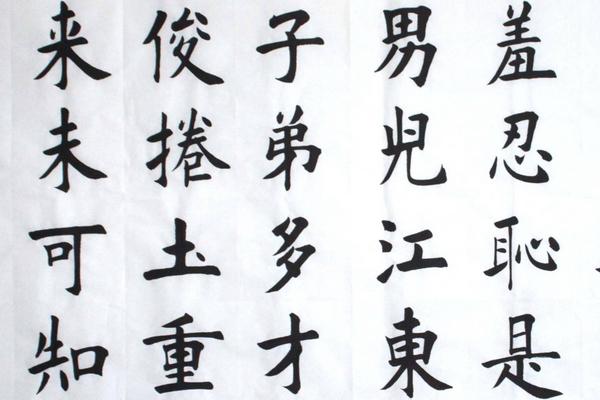 羞忍恥是
男児江東
子弟多才
俊捲土重
来未可知